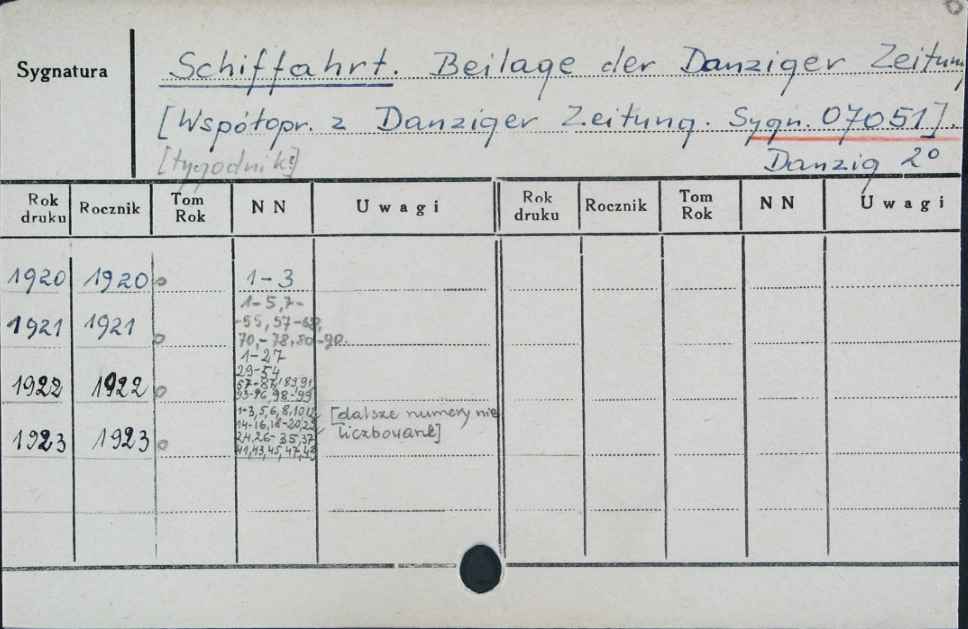 Sygnatura
Schiffahrt. Beilage der Danziger Zeitung
[Współopr. z Danziger Zeitung. Sygn. 07051].
[tygodnik?]
Danzig 2°
Rok druku Rocznik Tom Rok NN Uwagi Rok druku Rocznik Tom Rok NN Uwagi
1920 1920 1-3
1-5, 7-
1921 1921 -55, 57-68,
70,-78, 80-90.
1-27
29-54
1922 1922
98-99
1-3, 5, 6, 8, 10 [dalsze numery nie
14-16, 18-20,
1923 1923 24, 26-35, 37 liczbowane]
41, 43, 45, 47,